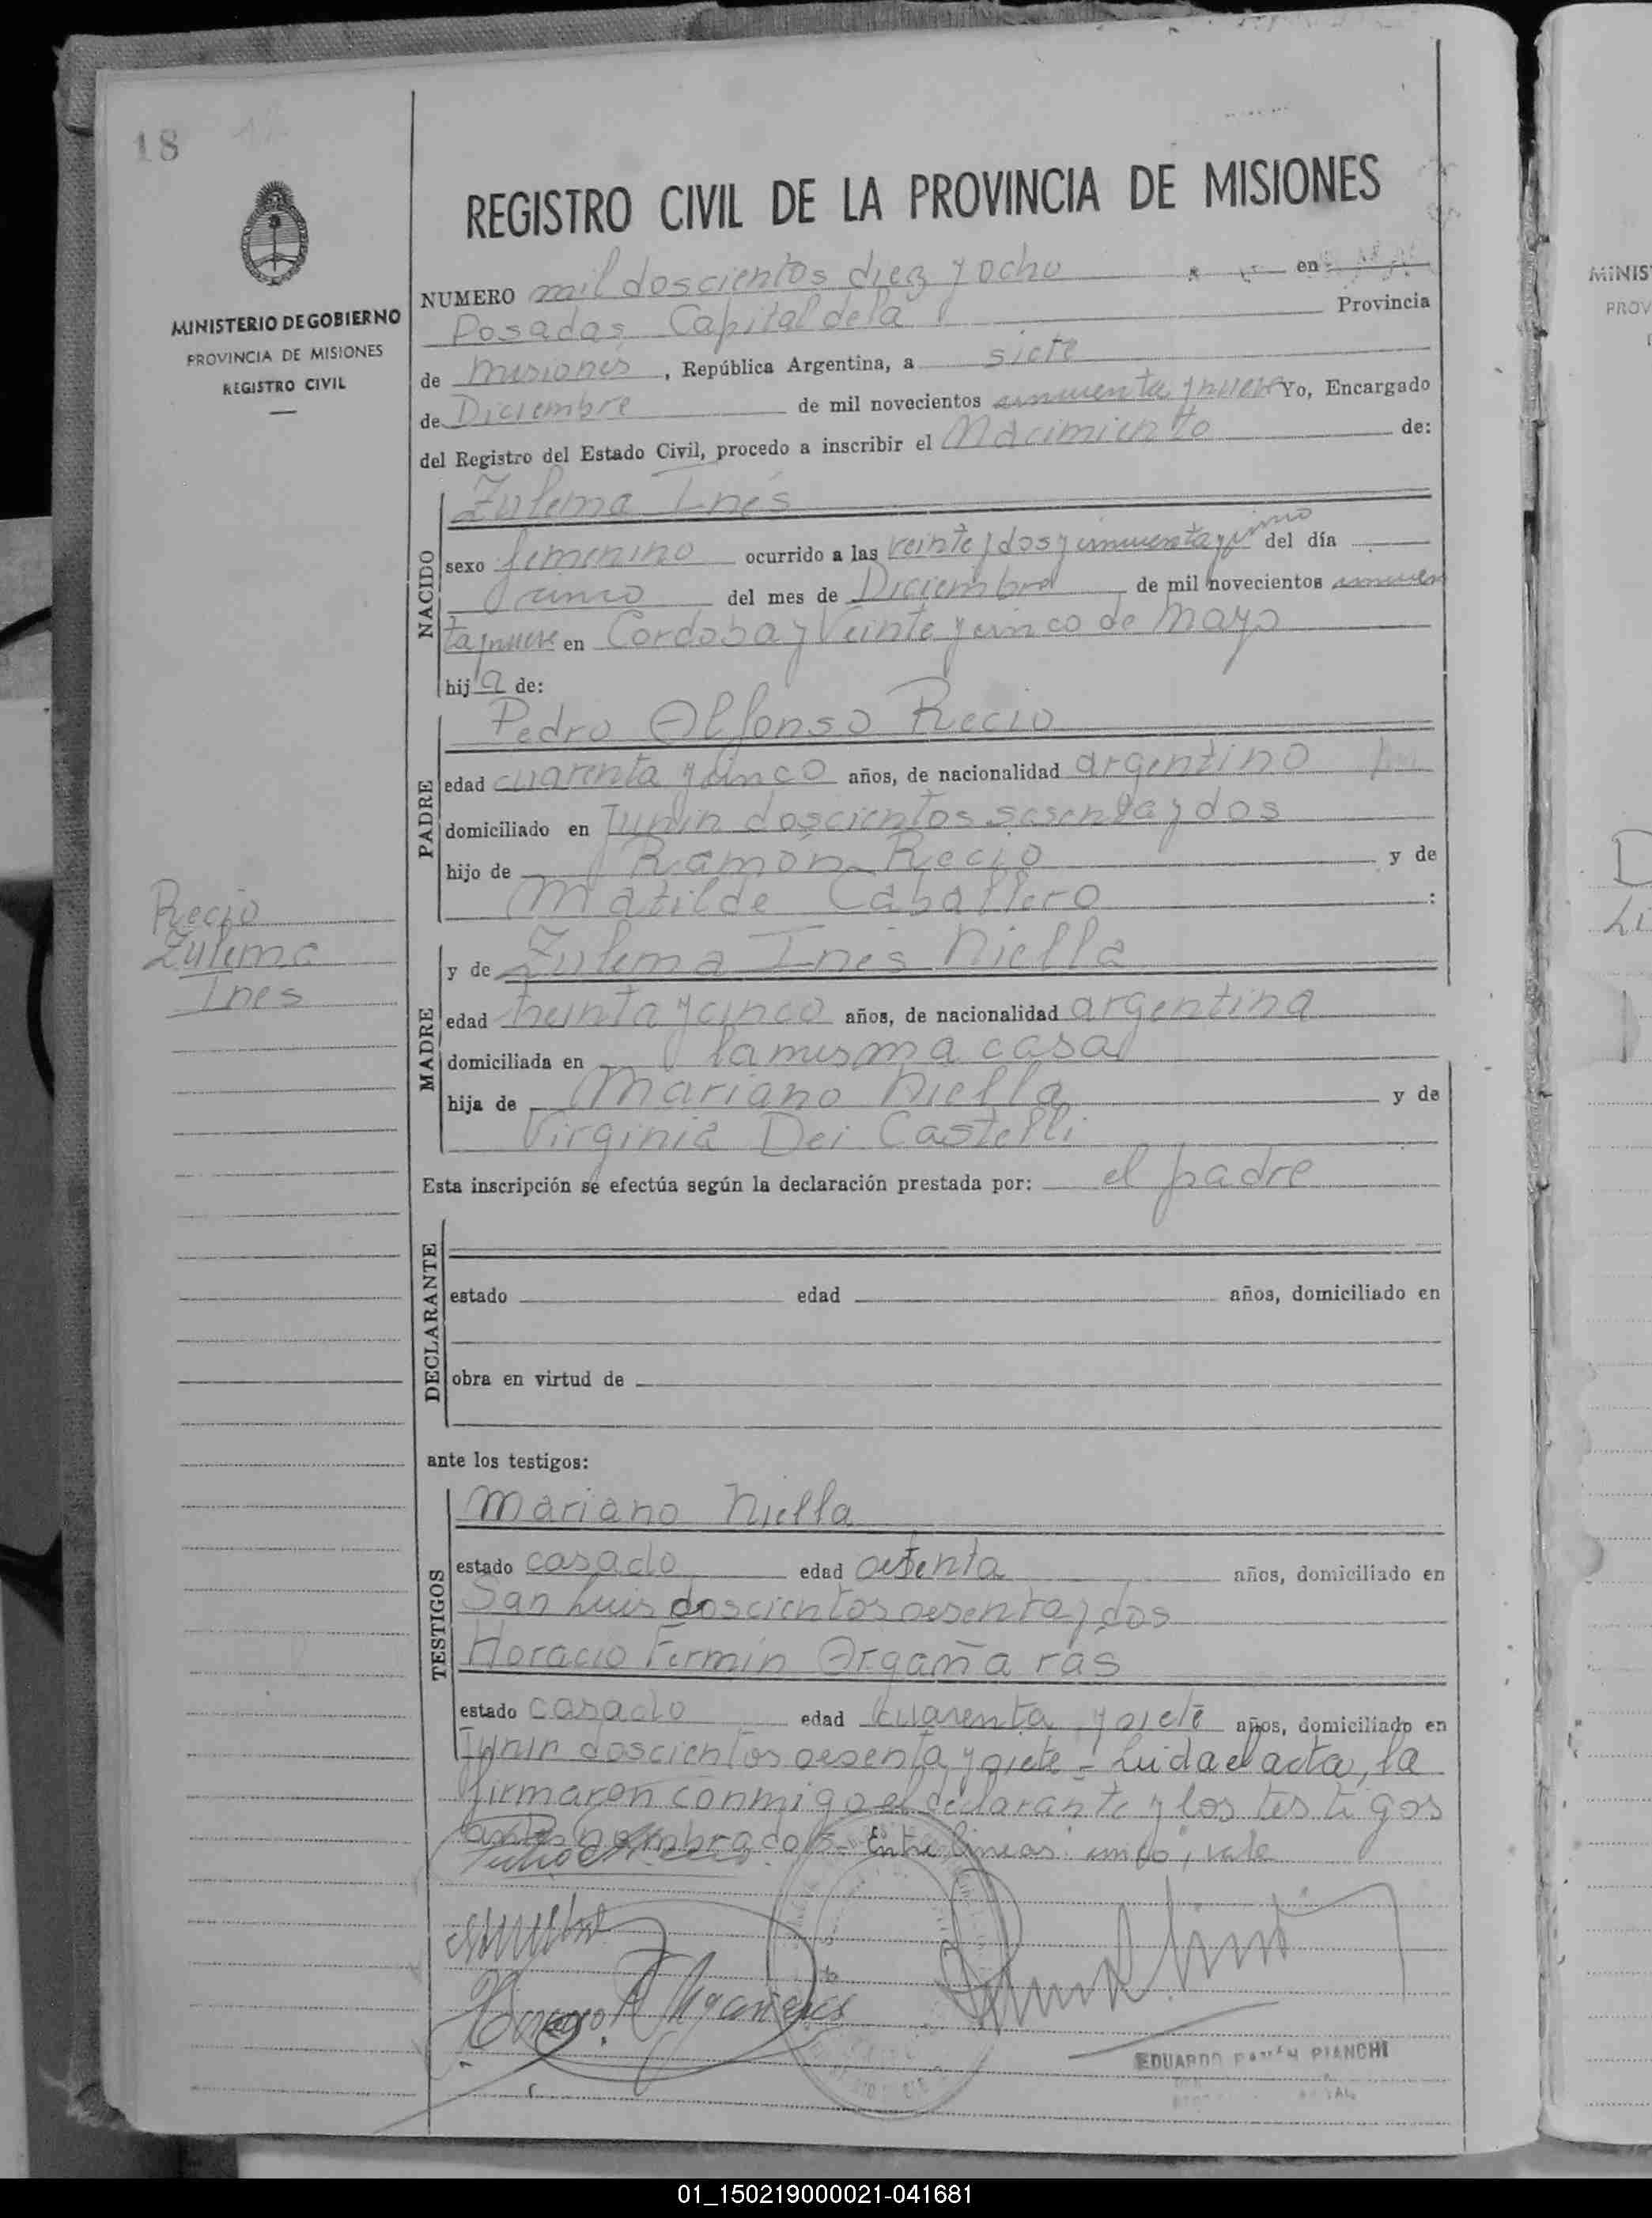 18
REGISTRO CIVIL DE LA PROVINCIA DE MISIONES
MINISTERIO DE GOBIERNO
PROVINCIA DE MISIONES
REGISTRO CIVIL
NUMERO mil doscientos diez y ocho en
Posadas Capital de la Provincia
de Misiones, República Argentina, a siete
de Diciembre de mil novecientos cincuenta y nueve Yo, Encargado
del Registro del Estado Civil, procedo a inscribir el Nacimiento de:
NACIDO
Zulema Inés
sexo femenino ocurrido a las veinte y dos y cincuenta y cinco del día
cinco del mes de Diciembre de mil novecientos cincuen
ta y nueve en Cordoba y Veinte y cinco de Mayo
hija de:
PADRE
Pedro Alfonso Recio
edad cuarenta y cinco años, de nacionalidad argentino
domiciliado en Junin doscientos sesenta y dos
hijo de Ramón Recio y de
Matilde Caballero :
Recio
Zulema
Ines
MADRE
y de Zulema Inés Niella
edad treinta y cinco años, de nacionalidad argentina
domiciliada en la misma casa
hija de Mariano Niella y de
Virginia Dei Castelli
Esta inscripción se efectúa según la declaración prestada por: el padre
DECLARANTE
estado edad años, domiciliado en
obra en virtud de
ante los testigos:
TESTIGOS
Mariano Niella
estado casado edad años, domiciliado en
San Luis doscientos sesenta y dos
Horacio Fermín Orgaña rás
estado casado edad cuarenta y siete años, domiciliado en
Junin doscientos sesenta y siete - Leida el acta, la
firmaron conmigo el declarante y los testigos
antes nombrados - Entre lineas: cinco, vale
EDUARDO RAMÓN PIANCHI
MINIS
PROV
01_150219000021-041681